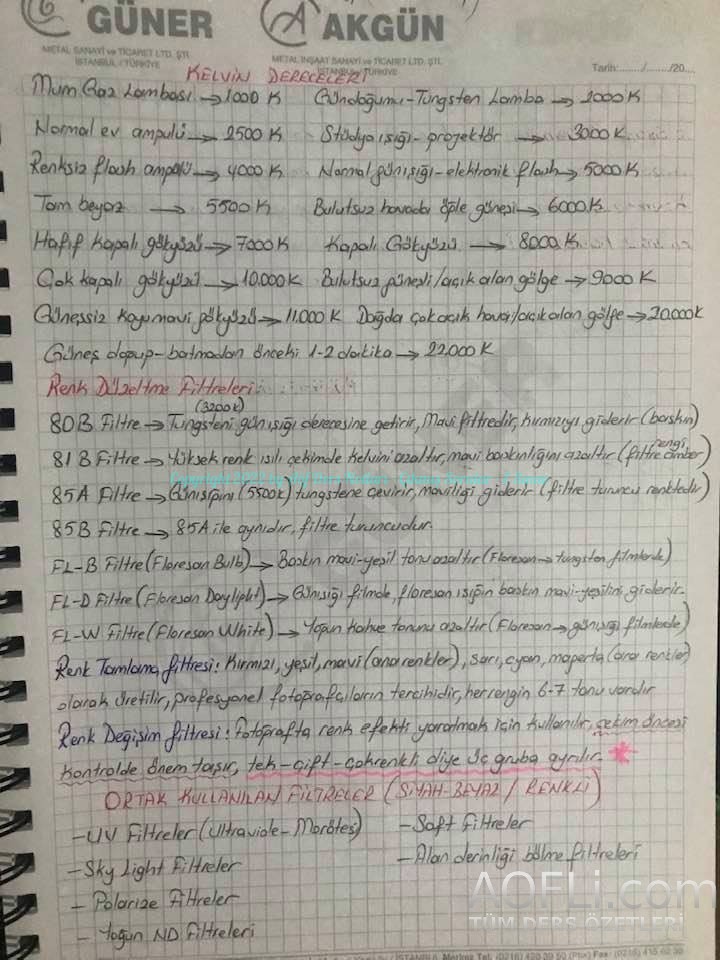 GÜNER
AKGÜN
METAL SANAYİ ve TİCARET LTD. ŞTİ.
İSTANBUL / TÜRKİYE
METAL İNŞAAT SANAYİ ve TİCARET LTD. ŞTİ.
İSTANBUL / TÜRKİYE
Tarih:....../......../20....
KELVİN DERECELERİ
Mum Gaz Lambası → 1000 K Gündoğumu-Tungsten Lamba → 2000 K
Normal ev ampulü → 2500 K Stüdyo ışığı-projektör → 3000 K
Renksiz flash ampülü → 4000 K Normal günışığı-elektronik flash → 5000 K
Tam beyaz → 5500 K Bulutsuz havada öğle güneşi → 6000 K
Hafif kapalı gökyüzü → 7000 K Kapalı Gökyüzü → 8000 K
Çok kapalı gökyüzü → 10.000 K Bulutsuz güneşli/açık alan gölge → 9000 K
Güneşsiz koyu mavi gökyüzü → 11.000 K Dağda çok açık hava/açık alan gölge → 20.000 K
Güneş doğup-batmadan önceki 1-2 dakika → 22.000 K
Renk Düzeltme Filtreleri
(3200 K)
80B Filtre → Tungsteni günışığı derecesine getirir, Mavi filtredir, kırmızıyı giderir (baskın)
81B Filtre → Yüksek renk ısılı çekimde kelvini azaltır, mavi baskınlığını azaltır (filtre rengi amber)
85A Filtre → Günışığını (5500 K) tungstene çevirir, maviliği giderir (filtre turuncu renktedir)
85B Filtre → 85A ile aynıdır, filtre turuncudur.
FL-B Filtre (Floresan Bulb) → Baskın mavi-yeşil tonu azaltır (Floresan → tungsten filmlerde)
FL-D Filtre (Floresan Daylight) → Günışığı filmde, floresan ışığın baskın mavi-yeşilini giderir.
FL-W Filtre (Floresan White) → Yoğun kahve tonunu azaltır (Floresan → günışığı filmlerde)
Renk Tamlama filtresi: Kırmızı, yeşil, mavi (ana renkler), sarı, cyan, magenta (ara renkler)
olarak üretilir, profesyonel fotoğrafçıların tercihidir, her rengin 6-7 tonu vardır
Renk Değişim filtresi: Fotoğrafta renk efekti yaratmak için kullanılır, çekim öncesi
kontrolde önem taşır, tek-çift-çok renkli diye üç gruba ayrılır. *
ORTAK KULLANILAN FİLTRELER (SİYAH-BEYAZ / RENKLİ)
- UV Filtreler (Ultraviole-Morötesi) - Soft Filtreler
- Sky Light Filtreler - Alan derinliği bölme filtreleri
- Polarize Filtreler
- Yoğun ND Filtreleri
AOFLi.com
TÜM DERS ÖZETLERİ